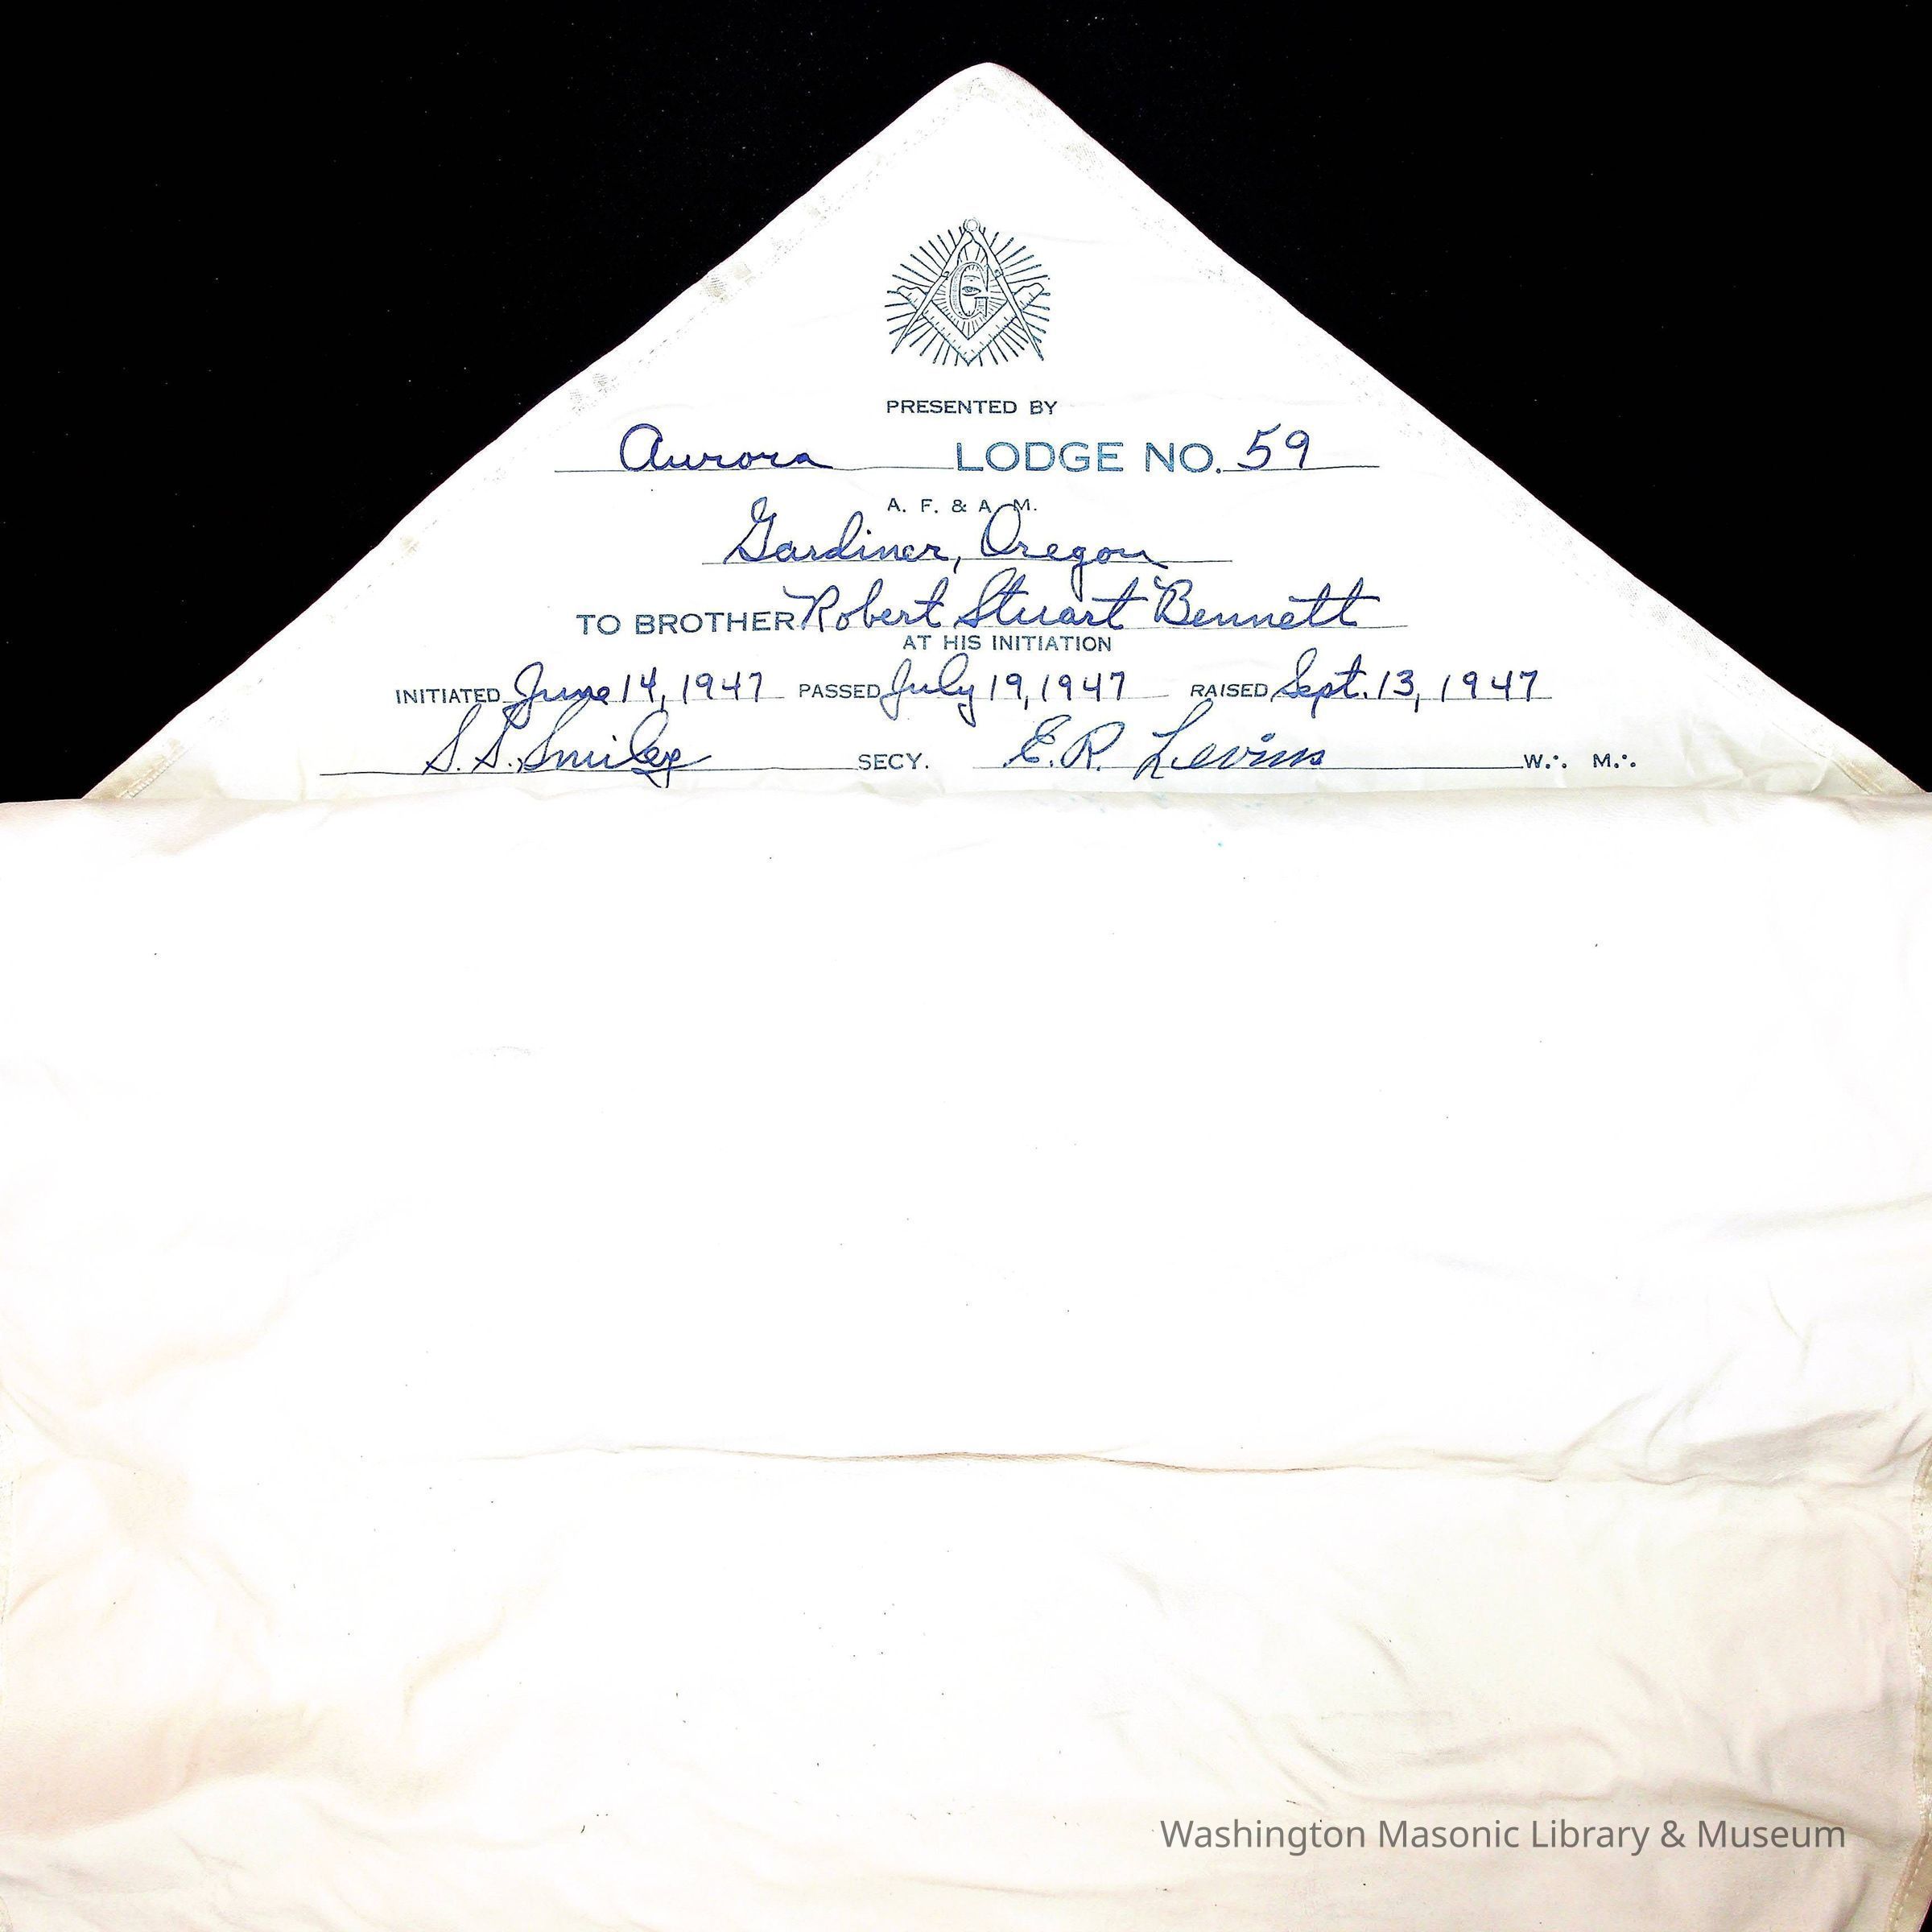 G
PRESENTED BY
Aurora LODGE NO. 59
A. F. & A. M.
Gardiner, Oregon
TO BROTHER Robert Stuart Bennett
AT HIS INITIATION
INITIATED June 14, 1947 PASSED July 19, 1947 RAISED Sept. 13, 1947
S. S. Smiley SECY. E. R. Levins W∴ M∴
Washington Masonic Library & Museum